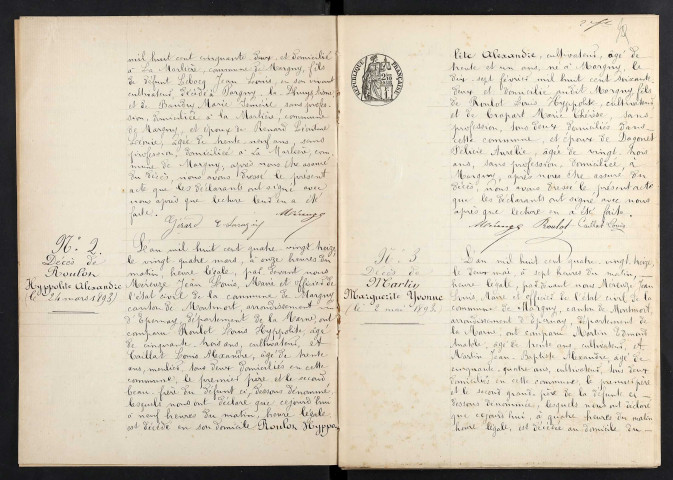 mil huit cent cinquante deux, et domicilié
à La Marlière, commune de Margny, fils
de défunt Lebocq Jean Louis, en son vivant
cultivateur décédé à Margny, la
et de Baudry Marie sans profes-
sion, domiciliée à La Marlière, commune
de Margny, et époux de Renard Léontine
Léonie, âgée de trente neuf ans, sans
profession, domiciliée à La Marlière, com-
mune de Margny, après nous être assuré
du décès, nous avons dressé le présent
acte que les déclarants ont signé avec
nous après que lecture leur en a été
faite.
Gérard
N° 2
Décès de
Roulot
Hyppolite Alexandre
(le 24 mars 1893)
L'an mil huit cent quatre vingt treize
le vingt quatre mars, à onze heures du
matin, heure légale, par devant nous
Jean Louis, Maire et officier de
l'état civil de la commune de Margny
canton de Montmort, arrondissement
d'Epernay, département de la Marne, ont
comparu Roulot Louis Hyppolite, âgé
de cinquante trois ans, cultivateur, et
Caillat Louis Alexandre, âgé de trente
ans, meunier, tous deux domiciliés en cette
commune, le premier père et le second
beau-frère du défunt ci-dessous dénommé
lesquels nous ont déclaré que cejourd'hui
à neuf heures du matin, heure légale
est décédé en son domicile Roulot Hyppo-
lite Alexandre, cultivateur, âgé de
trente et un ans, né à Margny, le
dix sept février mil huit cent soixante
deux et domicilié audit Margny fils
de Roulot Louis Hyppolite, cultivateur
et de Cropart Marie Thérèse, sans
profession, tous deux domiciliés dans
cette commune, et époux de Dagonet
Aurélie, âgée de vingt trois
ans, sans profession, domiciliée à
Margny, après nous être assuré du
décès, nous avons dressé le présent acte
que les déclarants ont signé avec nous
après que lecture en a été faite.
Roulot Caillat Louis
RÉPUBLIQUE FRANÇAISE
N° 3
Décès de
Martin
Marguerite Yvonne
(le 2 mai 1893)
L'an mil huit cent quatre vingt treize,
le deux mai à sept heures du matin,
heure légale, par devant nous Jean
Louis Maire et officier de l'état civil de la
commune de Margny, canton de Montmort,
arrondissement d'Epernay, département
de la Marne, ont comparu Martin Edmond
âgé de trente ans, cultivateur, et
Martin Jean Baptiste Alexandre, âgé de
cinquante quatre ans, cultivateur, tous deux
domiciliés en cette commune le premier père
et le second grand père de la défunte ci-
dessous dénommée, lesquels nous ont déclaré
que cejourd'hui, à quatre heures du matin
heure légale, est décédée au domicile du